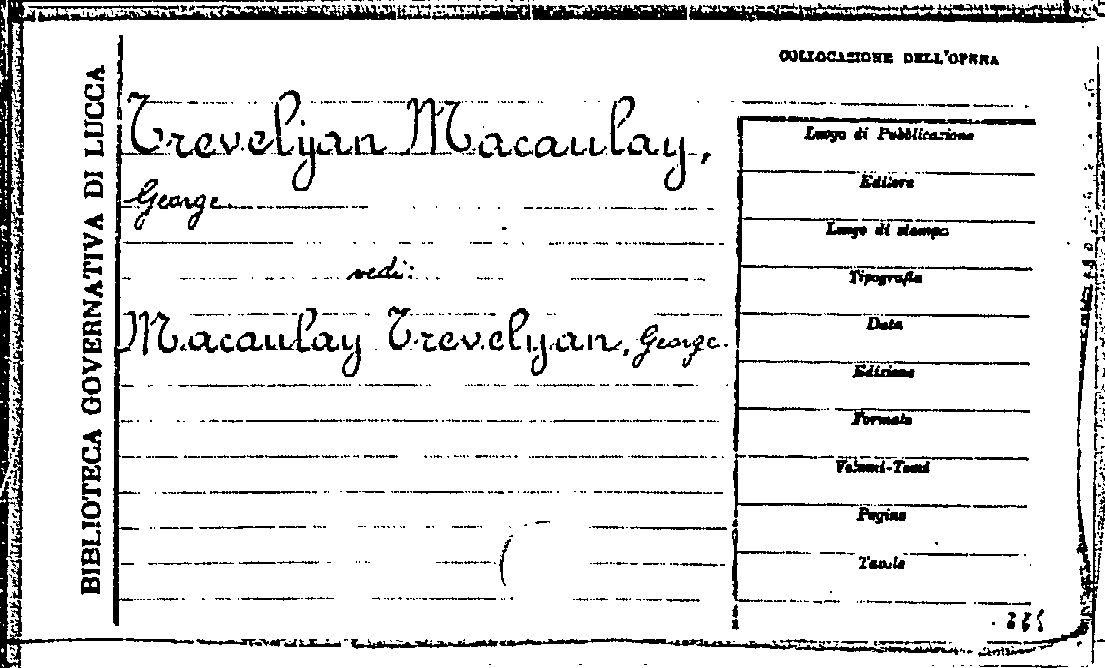 BIBLIOTECA GOVERNATIVA DI LUCCA
Trevelyan Macaulay,
George.
vedi:
Macaulay Trevelyan, George.
COLLOCAZIONE DELL'OPERA
Luogo di Pubblicazione
Editore
Luogo di stampa
Tipografia
Data
Edizione
Formato
Volumi-Tomi
Pagine
Tavole